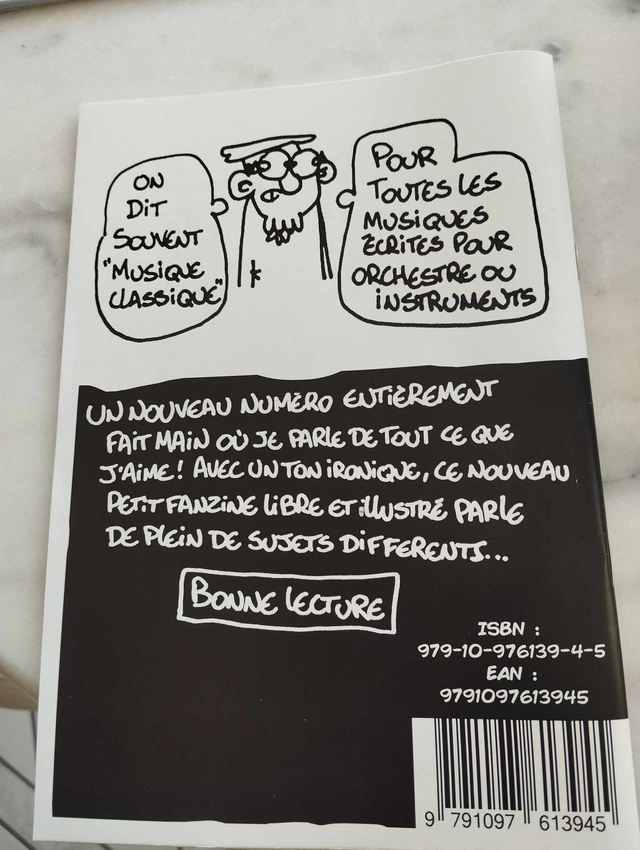 ON
DIT
SOUVENT
"MUSIQUE
CLASSIQUE"
POUR
TOUTES LES
MUSIQUES
ÉCRITES POUR
ORCHESTRE OU
INSTRUMENTS
UN NOUVEAU NUMÉRO ENTIÈREMENT
FAIT MAIN OÙ JE PARLE DE TOUT CE QUE
J'AIME! AVEC UN TON IRONIQUE, CE NOUVEAU
PETIT FANZINE LIBRE ET ILLUSTRÉ PARLE
DE PLEIN DE SUJETS DIFFERENTS...
BONNE LECTURE
ISBN :
979-10-976139-4-5
EAN :
9791097613945
9 791097 613945